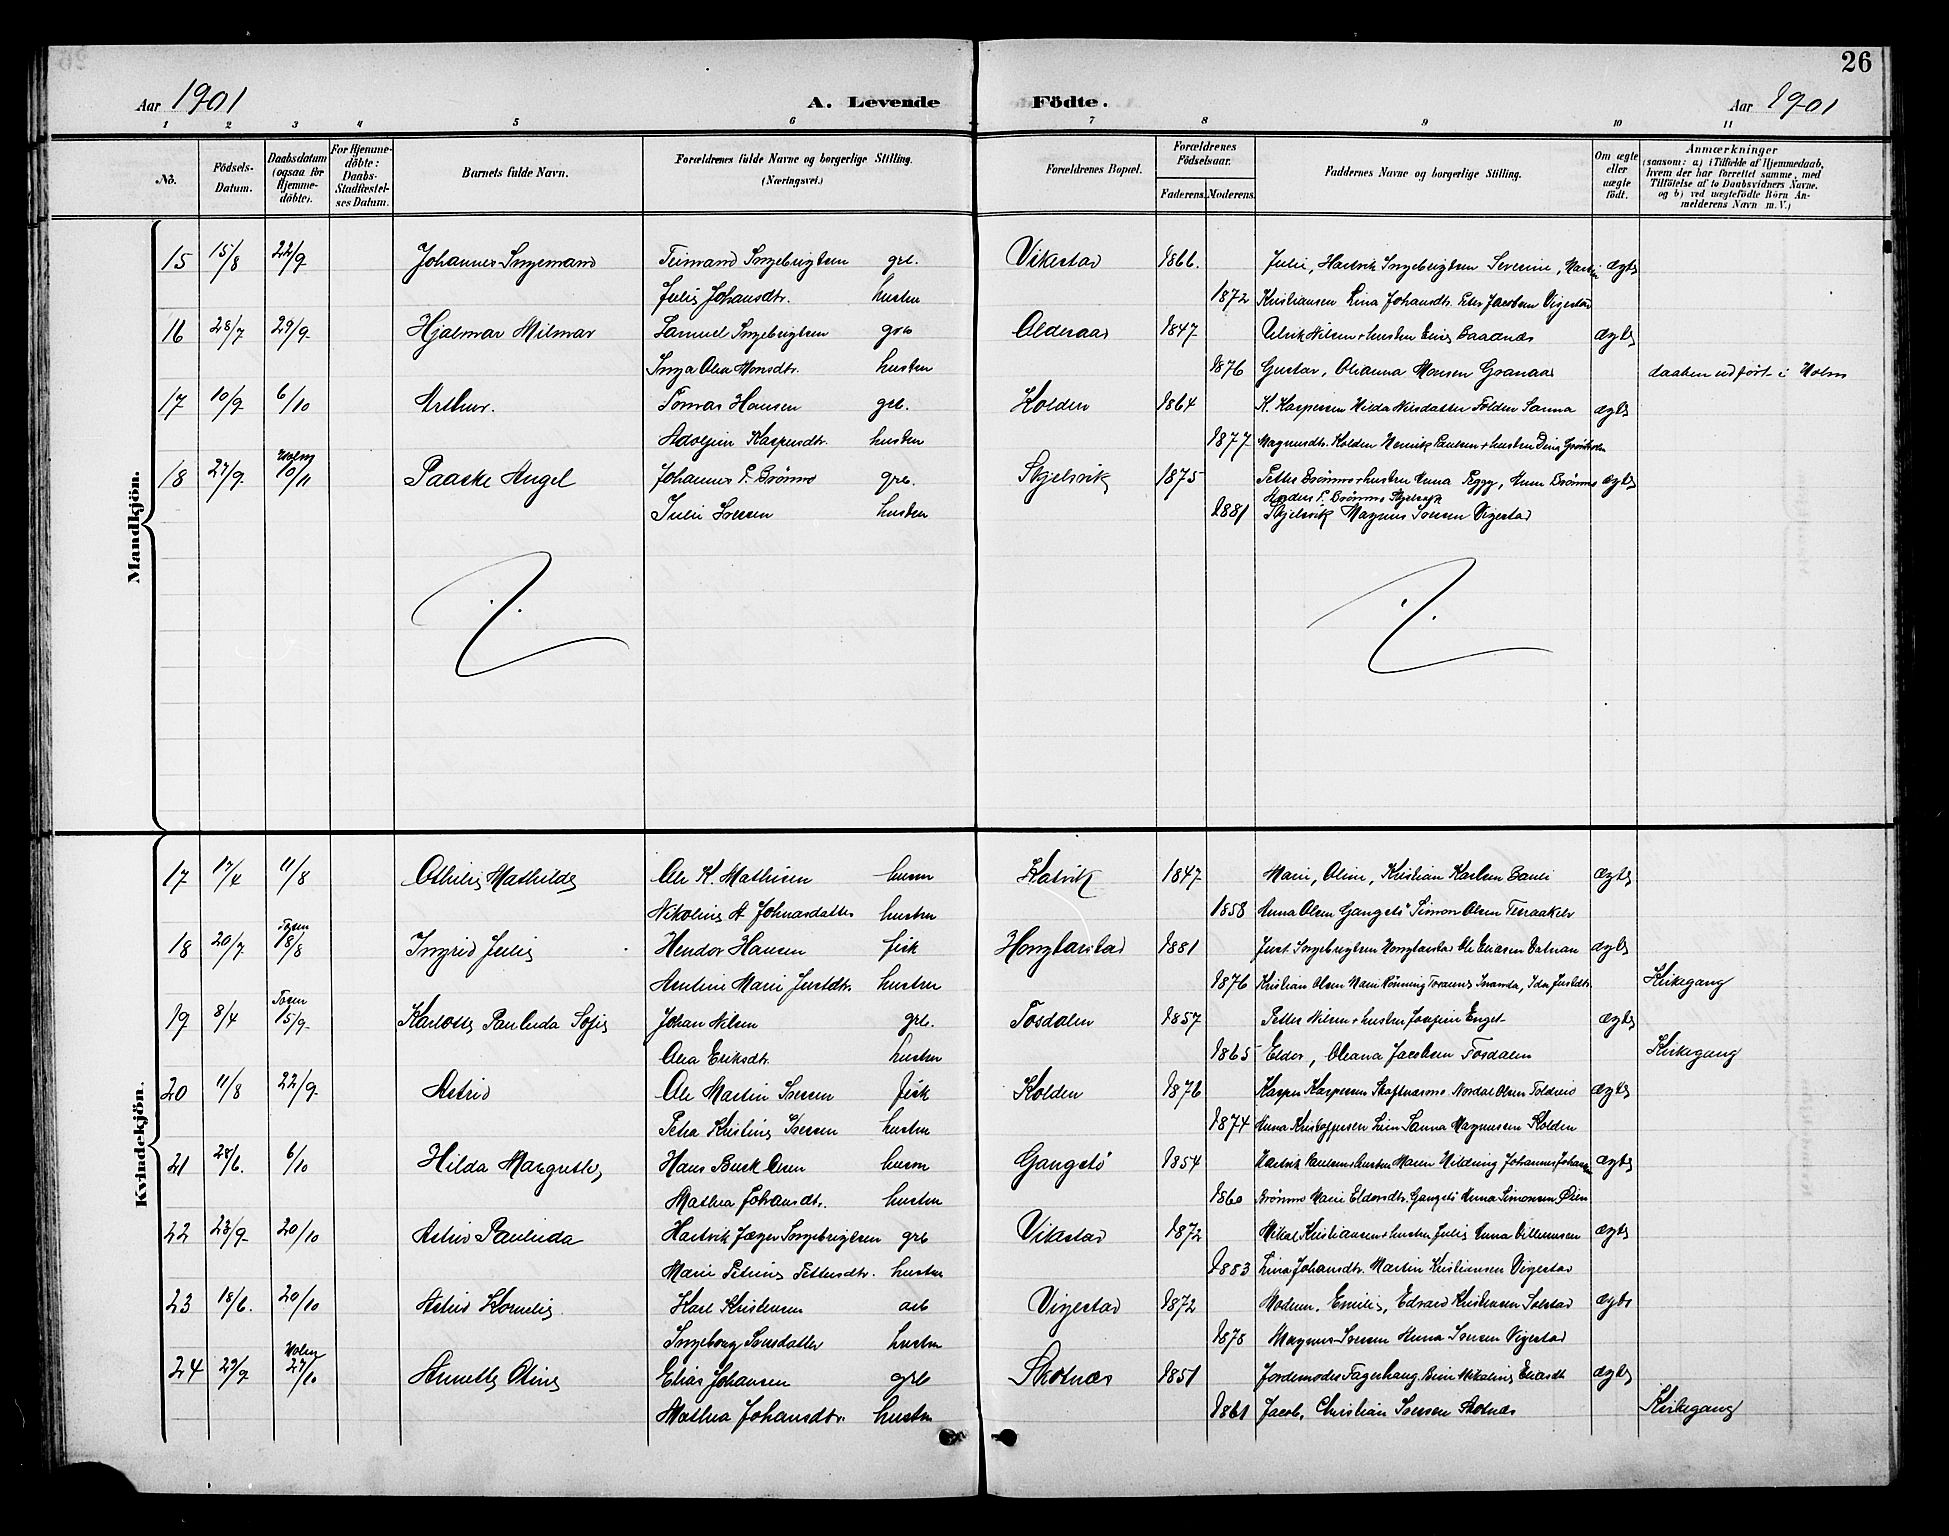 26
Aar 1901 A. Levende Födte. Aar 1901
1 2 3 4 5 6 7 8 9 10 11
No. Födsels-Datum. Daabsdatum (ogsaa for Hjemme-döbte). For Hjemme-döbte: Daabs-Stadfæstel-ses Datum. Barnets fulde Navn. Forældrenes fulde Navne og borgerlige Stilling. (Næringsvei.) Forældrenes Bopæl. Forældrenes Födselsaar. Faderens. Moderens. Faddernes Navne og borgerlige Stilling. Om ægte eller uægte födt. Anmærkninger (saasom: a) i Tilfælde af Hjemmedaab, hvem der har forrettet samme, med Tilföielse af to Daabsvidners Navne. og b) ved uægtefödte Börn An-melderens Navn m. V.)
Mandkjön.
15 15/8 22/9 Johannes Ingemand Teimand Ingebrigtsen grb. Vikestad 1866. Julie, Hartvik Ingebrigtsen Severine, Martin ægte
Julie Johansdtr. hustru 1872 Kristiansen Lina Johansdtr. Peter Jacobsen Vigestad
16 28/7 29/9 Hjalmar Milmar Samuel Ingebrigtsen grb Alderaas 1847 Ulrik Nilsen + hustru Baadnæs ægte
Inga Olea Monsdtr. hustru 1876 Gustav, Oleanna Monsen Granaas daaben udført i Holm
17 10/9 6/10 Arthur. Tomas Hansen grb. Kolden 1864 K. Kaspersen Hilda Nilsdatter Folden Sanna ægte
Adolfine Kaspersdtr. hustru 1877 Magnusdtr. Kolden Henrik Paulsen + hustru Dina
18 27/9 Holm 10/11 Paaske Angel Johannes P. Brønmo grb. Skjelsvik 1875 Petter Brønmo + hustru Anna Peggy, Anna Brønmo ægte
Anders P. Brønmo Skjelsvik
Julie Sørensen hustru 1881 Skjelsvik Magnus Sørensen Vigestad
Kvindekjön.
17 17/4 11/8 Othilie Mathilde Ole K. Mathisen husm Hatvik 1847 Marie, Oline, Kristian Karlsen ægte
Nikoline A Johnasdatter hustru 1858 Anna Olsen Gangstö Simon Olsen Terraakelv
18 20/7 Tosen 18/8 Ingrid Julie Hendor Hansen fisk Hongtarstad 1881 Just Ingebrigtsen Hongtarstad Ole Eliasen ægte
Antine Marie Justdtr. hustru 1876 Kristian Olsen Marie Rönning Ida Justdtr. Kirkegang
19 8/4 Tosen 15/9 Karlotte Paulida Sofie Johan Nilsen grb. Tosdalen 1857 Petter Nilsen + hustru Josefine Enget ægte
Olea Eriksdtr. hustru 1865 Eldor, Oleana Jacobsen Tosdalen Kirkegang
20 11/8 22/9 Astrid Ole Martin Sørensen fisk Kolden 1876 Kasper Kaspersen Nordal Olsen ægte
Petra Kristine Sørensen hustru 1874 Anna Kristoffersen Sanna Magnussen Kolden
21 28/6. 6/10 Hilda Margrethe Hans Buck Olsen husm Gangstö 1854 Hartvik Paulsen + hustru Maren Hildring Johannes Johansen ægte
Mathea Johansdtr. hustru 1860 Brønmo Marie Eldorsdtr. Gangstö Anna Simonsen
22 23/9 20/10 Astrid Paulida Hartvik Jæger Ingebrigtsen grb Vikestad 1872 Mikal Kristiansen + hustru Julie Anna Villumsen ægte
Marie Petrine Pettersdtr. hustru 1883 Lina Johansdtr. Martin Kristiansen Vigestad
23 18/6. 20/10 Astrid Kornelie. Karl Kristensen arb Vigestad 1872 Moderen, Emilie, Edvard Kristensen Solstad ægte
Ingeborg Sørensdatter hustru 1878 Magnus Sørensen Anna Sørensen Vigestad
24 29/9 Holm 27/10 Annette Oline Elias Johansen grb Skotnæs 1851 Jordemoder Fagerhaug Nikoline Eliasdtr ægte
Mathea Johansdtr. hustru 1861 Jacob, Christian Sørensen Skotnæs Kirkegang